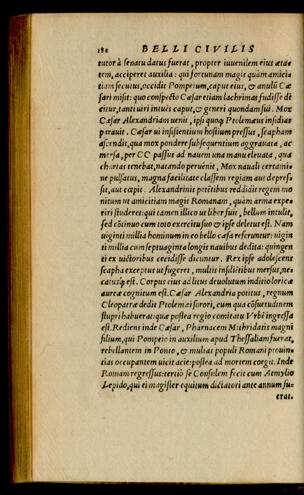 182 BELLI CIVILIS
tutor à senatu datus fuerat, propter iuuenilem eius æta-
tem, acciperet auxilia: qui fortunam magis quàm amici-
tiam secutus, occidit Pompeium, caput eius, & anulũ Cæ
sari misit: quo conspecto Cæsar etiam lachrimas fudisse di
citur, tanti uiri intuẽs caput, & generi quondam sui. Mox
Cæsar Alexandriam uenit, ipsi quoque Ptolemæus insidias
parauit. Cæsar ui insistentium hostium pressus, scapham
ascendit, qua mox pondere subsequentium aggrauata, ac
mersa, per CC passus ad nauem una manu eleuata, qua
chartas tenebat, natando peruenit. Mox nauali certami-
ne pulsatus, magna facilitate classem regiam aut depres-
sit, aut cepit. Alexandrinis petẽtibus reddidit regem mo
nitum ut amicitiam magis Romanam, quàm arma expe-
riri studeret: qui tamen illico ut liber fuit, bellum intulit,
sed cõtinuo cum toto exercitu suo & ipse deletus est. Nam
uiginti millia hominum in eo bello cæsa referuntur: uigin
ti millia cum septuaginta longis nauibus dedita: quingen
ti ex uictoribus cecidisse dicuntur. Rex ipse adolescens
scapha exceptus ut fugeret, multis insiliẽtibus mersus, ne-
catusque est. Corpus eius ad litus deuolutum inditio loricæ
aureæ cognitum est. Cæsar Alexandria potitus, regnum
Cleopatræ dedit Ptolemei sorori, cum qua cõsuetudinem
stupri habuerat: quæ postea regio comitatu Vrbẽ ingressa
est. Rediens inde Cæsar, Pharnacem Mithridatis magni
filium, qui Pompeio in auxilium apud Thessaliam fuerat,
rebellantem in Ponto, & multas populi Romani prouin-
cias occupantem uicit acie: postea ad mortem coegit. Inde
Romam regressus: tertiò se Consulem fecit cum Aemylio
Lepido, qui ei magister equitum dictatori ante annum fu-
erat.